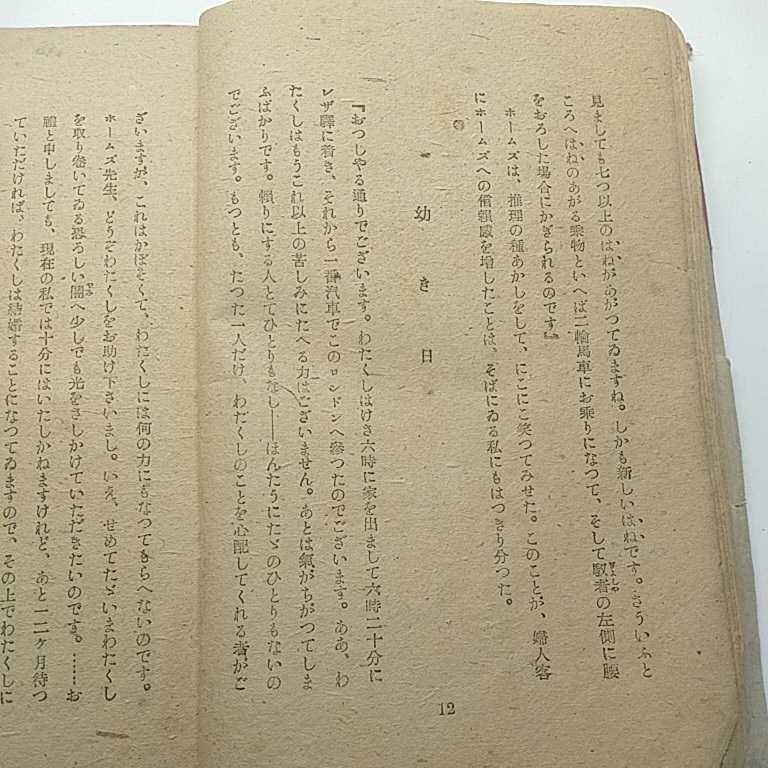 見ましても七つ以上のはねがあがつてゐますね。しかも新しいはねです。さういふと
ころへはねのあがる乗物といへば二輪馬車にお乗りになつて、そして馭者の左側に腰
をおろした場合にかぎられるのです』
ホームズは、推理の種あかしをして、にこにこ笑つてみせた。このことが、婦人客
にホームズへの信頼感を増したことは、そばにゐる私にもはつきり分つた。
幼き日
『おつしやる通りでございます。わたくしはけさ六時に家を出まして六時二十分に
レザ驛に着き、それから一番汽車でこのロンドンへ參つたのでございます。ああ、わ
たくしはもうこれ以上の苦しみにたへる力はございません。あとは氣がちがつてしま
ふばかりです。頼りにする人とてひとりもなし――ほんたうにたゞのひとりもないの
でございます。もつとも、たつた一人だけ、わたくしのことを心配してくれる者がご
12
ざいますが、これはかぼそくて、わたくしには何の力にもなつてもらへないのです。
ホームズ先生、どうぞわたくしをお助け下さいまし。いえ、せめてたゞいまわたくし
を取り巻いてゐる恐ろしい闇へ少しでも光をさしかけていただきたいのです。……お
禮と申しましても、現在の私では十分にはいたしかねますけれど、あと一二ヶ月待つ
ていただければ、わたくしは結婚することになつてゐますので、その上でわたくしに